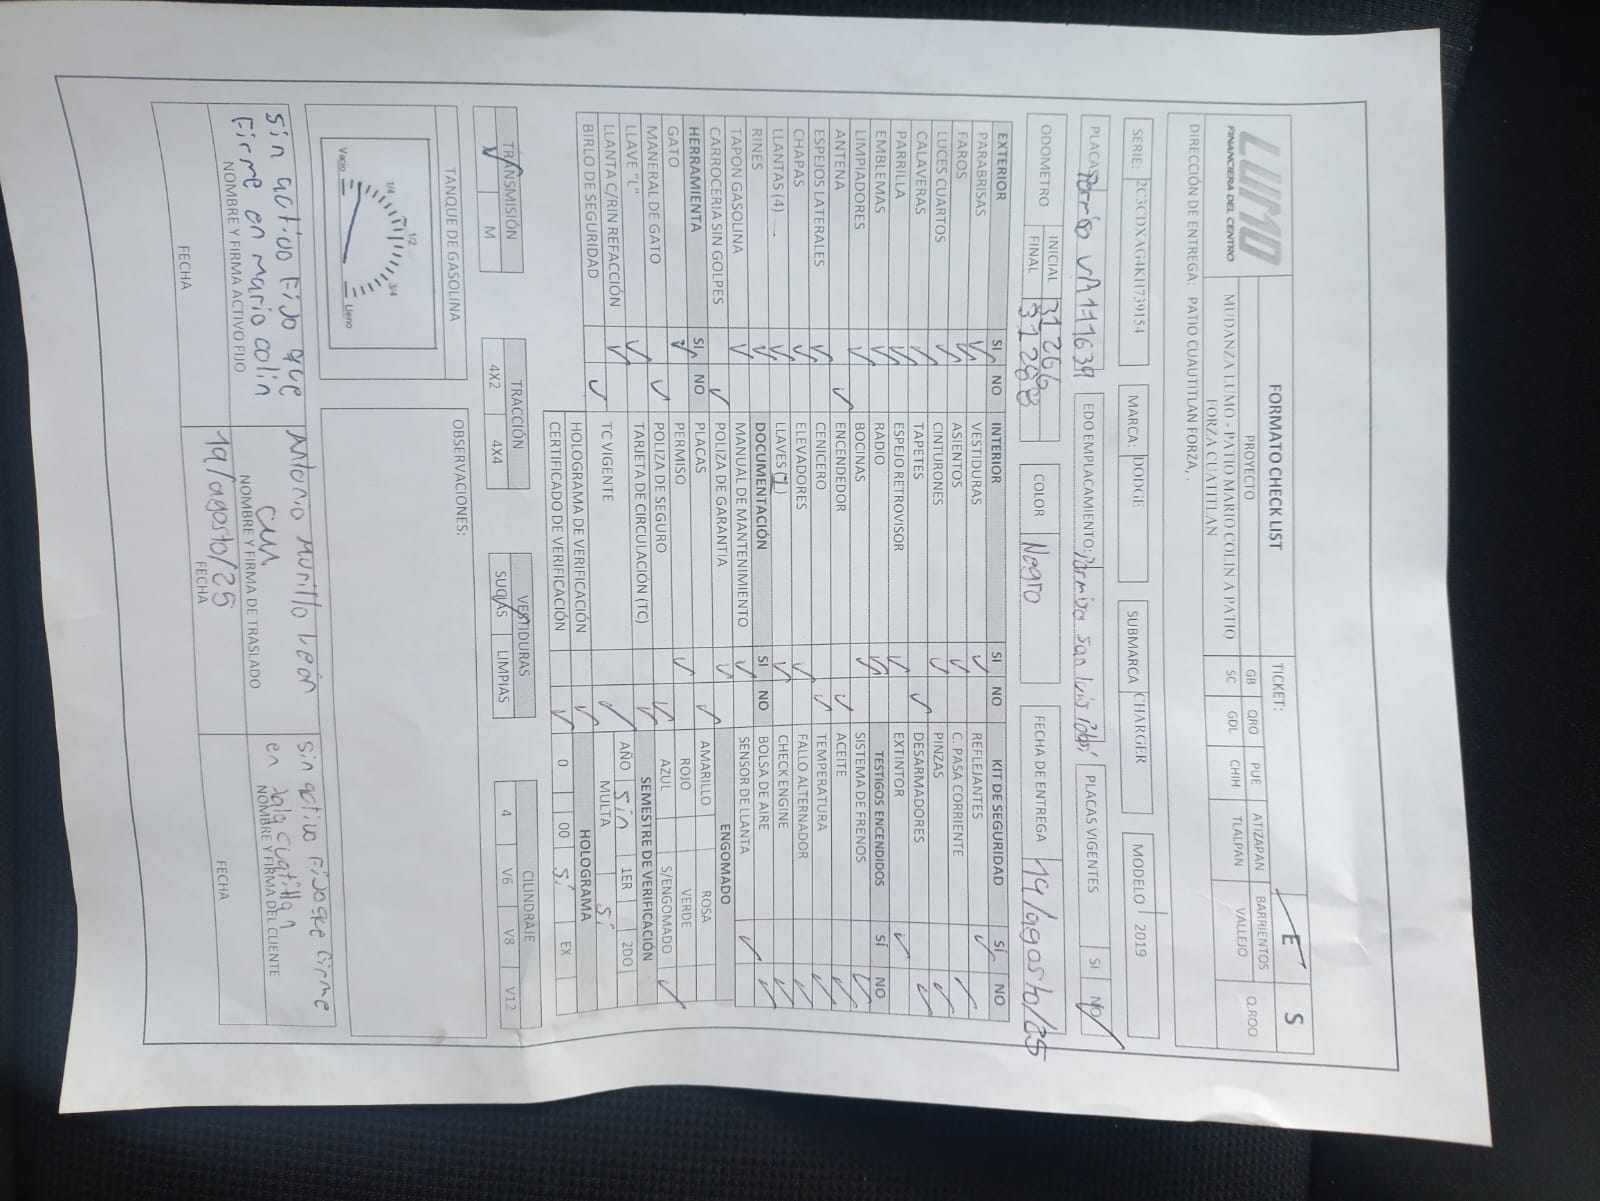 LUMO
FINANCIERA DEL CENTRO
FORMATO CHECK LIST
TICKET:
E S
PROYECTO
MUDANZA LUMO - PATIO MARIO COLIN A PATIO FORZA CUATITLAN
GB QRO PUE ATIZAPAN BARRIENTOS Q.ROO
SC GDL CHIH TLALPAN VALLEJO
DIRECCIÓN DE ENTREGA: PATIO CUAUTITLAN FORZA, .
SERIE: MARCA: DODGE SUBMARCA CHARGER MODELO 2019
PLACAS EDO EMPLACAMIENTO: Permiso san luis PLACAS VIGENTES SI NO
ODOMETRO INICIAL 31266 COLOR Negro FECHA DE ENTREGA 19/agosto/25
FINAL 31288
EXTERIOR SI NO INTERIOR SI NO KIT DE SEGURIDAD SÍ NO
PARABRISAS ✓ VESTIDURAS ✓ REFLEJANTES ✓
FAROS ✓ ASIENTOS ✓ C. PASA CORRIENTE ✓
LUCES CUARTOS ✓ CINTURONES ✓ PINZAS ✓
CALAVERAS ✓ TAPETES ✓ DESARMADORES ✓
PARRILLA ✓ ESPEJO RETROVISOR ✓ EXTINTOR ✓
EMBLEMAS ✓ RADIO ✓ TESTIGOS ENCENDIDOS SÍ NO
LIMPIADORES ✓ BOCINAS ✓ SISTEMA DE FRENOS ✓
ANTENA ✓ ENCENDEDOR ✓ ACEITE ✓
ESPEJOS LATERALES ✓ CENICERO ✓ TEMPERATURA ✓
CHAPAS ✓ ELEVADORES ✓ FALLO ALTERNADOR ✓
LLANTAS (4) . ✓ LLAVES (1) ✓ CHECK ENGINE ✓
RINES ✓ DOCUMENTACIÓN SI NO BOLSA DE AIRE ✓
TAPON GASOLINA ✓ MANUAL DE MANTENIMIENTO ✓ SENSOR DE LLANTA ✓
CARROCERIA SIN GOLPES ✓ POLIZA DE GARANTIA ✓ ENGOMADO
HERRAMIENTA SI NO PLACAS ✓ AMARILLO ROSA
GATO ✓ PERMISO ✓ ROJO VERDE
MANERAL DE GATO ✓ POLIZA DE SEGURO ✓ AZUL S/ENGOMADO ✓
LLAVE "L" ✓ TARJETA DE CIRCULACIÓN (TC) ✓ SEMESTRE DE VERIFICACIÓN
LLANTA C/RIN REFACCIÓN ✓ TC VIGENTE ✓ AÑO Sin 1ER 2DO
MULTA Si
BIRLO DE SEGURIDAD ✓ HOLOGRAMA DE VERIFICACIÓN ✓ HOLOGRAMA
CERTIFICADO DE VERIFICACIÓN ✓ 0 00 Si EX
TRANSMISIÓN TRACCIÓN VESTIDURAS CILINDRAJE
M 4X2 4X4 SUCIAS LIMPIAS 4 V6 V8 V12
TANQUE DE GASOLINA
Vacio 1/4 1/2 3/4 Lleno
OBSERVACIONES:
Sin activo Fijo que
Firme en mario colin
NOMBRE Y FIRMA ACTIVO FIJO
FECHA
Antonio Murillo
NOMBRE Y FIRMA DE TRASLADO
19/agosto/25
FECHA
Sin activo Fijo que Firme
en
NOMBRE Y FIRMA DEL CLIENTE
FECHA